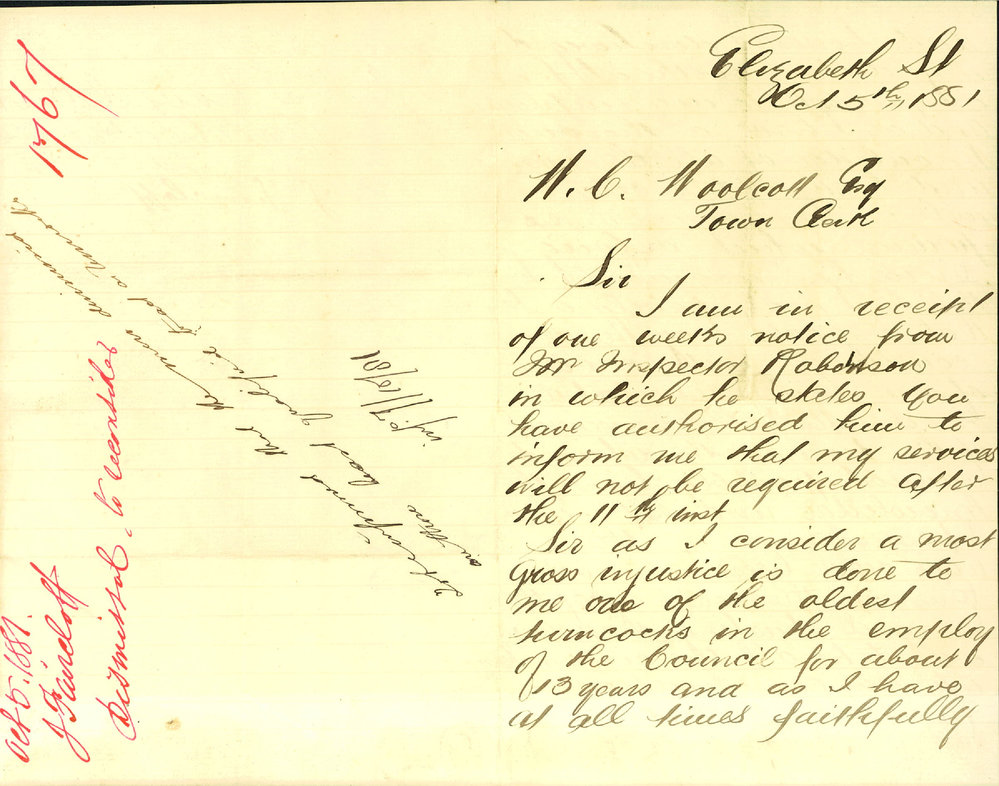 Elizabeth St
Oct 5th, 1881
W. C. Woolcott Esq
Town Clerk
Sir
I am in receipt
of one weeks notice from
Mr Inspector Robinson
in which he states you
have authorised him to
inform me that my services
will not be required after
the 11th inst
Sir as I consider a most
gross injustice is done to
me one of the oldest
turncocks in the employ
of the Council for about
13 years and as I have
at all times faithfully
1767
Oct 5. 1881.
J Fairclott
Dismissal, to reconsider
Informed that the men
had
7/10/81